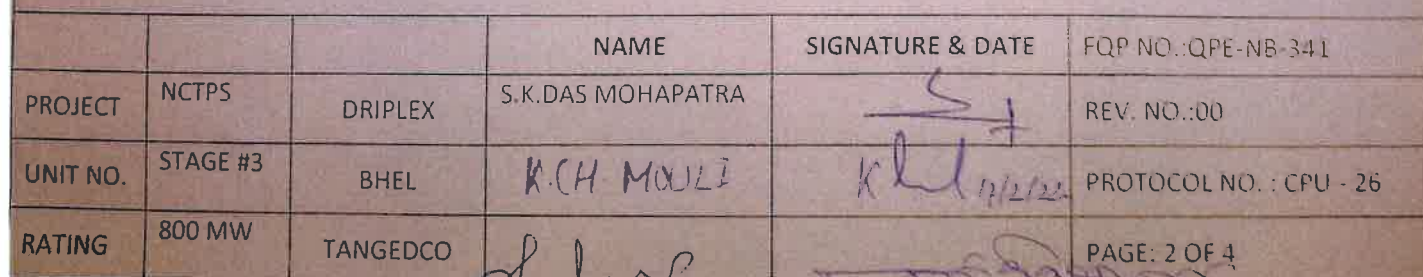 NAME SIGNATURE & DATE FQP NO.:QPE-NB-341
PROJECT NCTPS DRIPLEX S.K.DAS MOHAPATRA REV. NO.:00
UNIT NO. STAGE #3 BHEL K.CH. MOULI 17/2/22 PROTOCOL NO. : CPU - 26
RATING 800 MW TANGEDCO PAGE: 2 OF 4